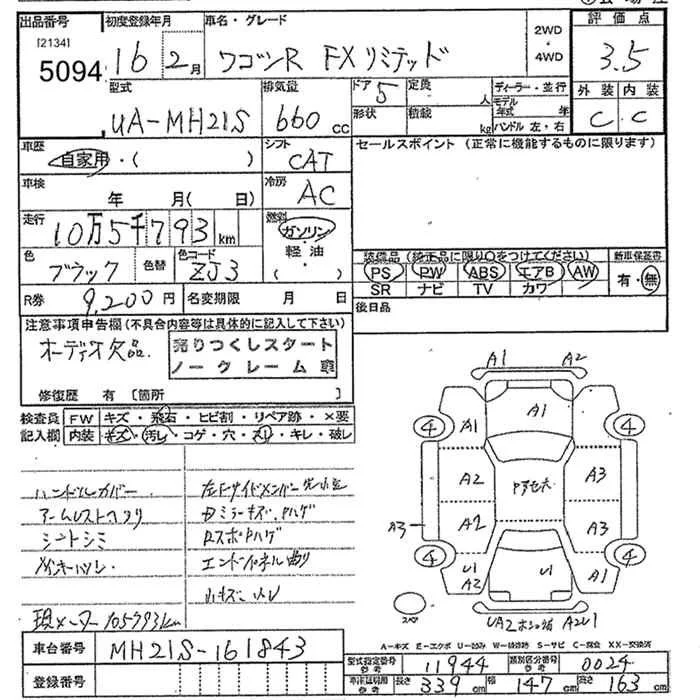 出品番号 初度登録年月 車名・グレード 2WD・4WD 評価点
[2134]
5094 16 2月 ワゴンR FXリミテッド 3.5
型式 排気量 ドア 5 定員 人 ディーラー・並行 外装 内装
UA-MH21S 660 cc 形状 積載 kg モデル年式 年 ハンドル 左・右 C C
車歴 自家用・( ) シフト CAT セールスポイント(正常に機能するものに限ります)
車検 年 月( 日) 冷房 AC
走行 10万5千793 km 燃料 ガソリン・軽油 ( )
色 ブラック 色替 色コード ZJ3
装備品(純正品に限り○をつけてください) 新車保証書
PS PW ABS エアB AW 有・無
SR ナビ TV カワ
R券 9,200円 名変期限 月 日 後日品
注意事項申告欄(不具合内容等は具体的に記入して下さい)
オーディオ欠品 売りつくしスタート
ノークレーム車
修復歴 有 [箇所 ]
検査員記入欄 FW キズ・飛石・ヒビ割・リペア跡・×要
内装 キズ・汚レ・コゲ・穴・スレ・キレ・破レ
ハンドルカバー
アームレストヘタリ
シートシミ
左Fサイドメンバー
Dミラーキズ、ハゲ
Rスポハゲ
現メーター 105793km
A1 A2
4 A1 A1 4
A2 A3
A3 A2 A3
4 U1 A2 U1 A1 4
スペア
車台番号 MH21S-161843
登録番号
A-キズ E-エクボ U-凹み W-補修跡 S-サビ C-腐食 XX-交換済
型式指定番号 参考 11944 類別区分番号 参考 0024
車体証明用 参考 長さ 339 cm 幅 147 cm 高さ 163 cm